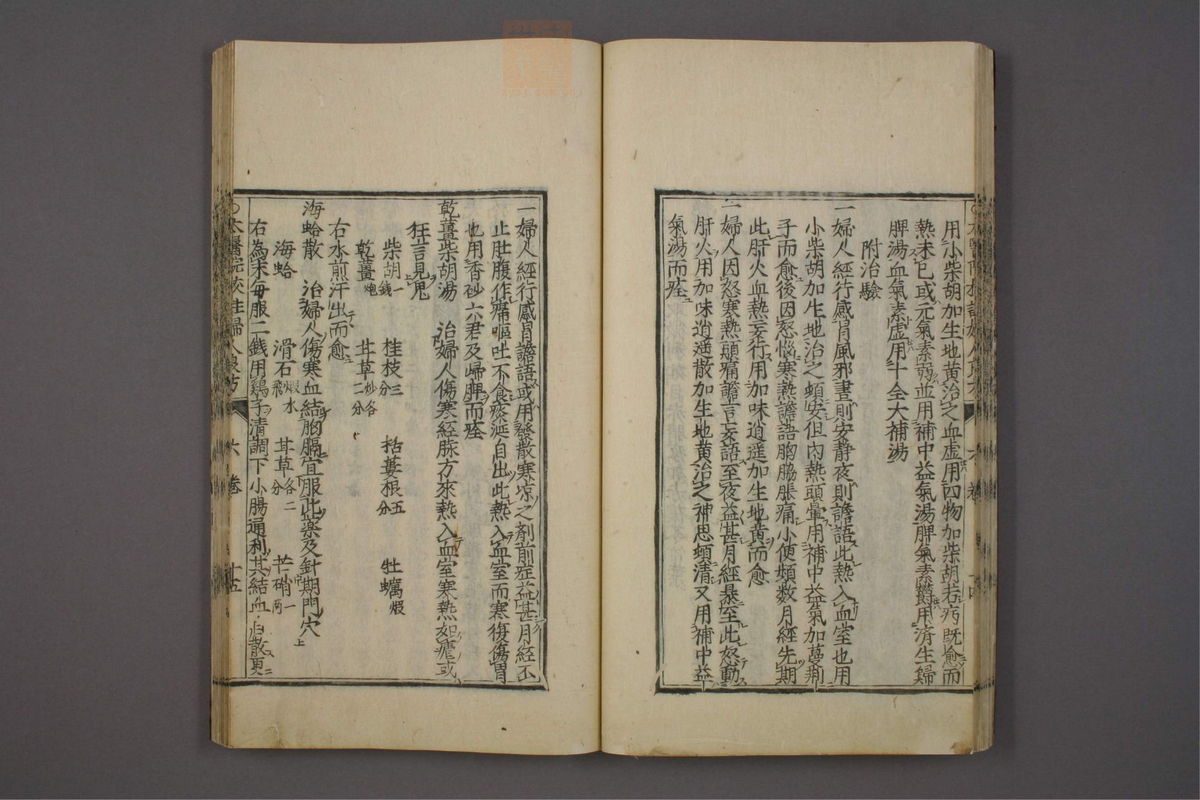 用小柴胡加生地黄治之血虚用四物加柴胡若病既愈而
熱未已或元氣素弱並用補中益氣湯脾氣素欝用済生歸
脾湯血氣素虚用十全大補湯
附治驗
一婦人經行感冐風邪晝則安静夜則譫語此熱入血室也用
小柴胡加生地治之頓安但内熱頭暈用補中益氣加蔓荊
子而愈後因怒惱寒熱譫語胸脇脹痛小便頻数月經先期
此肝火血熱妄行用加味逍遥加生地黄而愈
一婦人因怒寒熱頭痛譫言妄語至夜益甚月經暴至此怒動
肝火用加味逍遥散加生地黄治之神思頓清又用補中益
氣湯而痊
一婦人經行感冐譫語或用發散寒凉之剤前症益甚月經不
止肚腹作痛嘔吐不食痰涎自出此熱入血室而寒復傷胃
也用香砂六君及歸脾而痊
乾薑柴胡湯 治婦人傷寒經脉方來熱入血室寒熱如瘧或
狂言見鬼
柴胡一錢 桂枝三分 栝蔞根五分 牡蠣煆
乾薑炮 甘草炒各二分
右水煎汗出而愈
海蛤散 治婦人傷寒血結胸膈宜服此薬及針期門穴上
海蛤 滑石煆水飛 甘草各二分 芒硝一兩
右為末毎服二錢用鷄子清調下小腸通利其結血自散更
太醫院校註婦人良方 六卷 十五